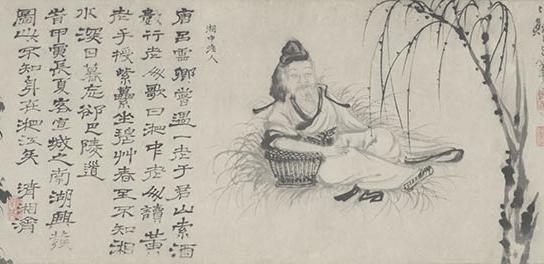 湘中老人
唐呂雲卿嘗遇一老于君山索酒
數行老人歌曰湘中老人讀黃
老手援紫藟坐碧艸春至不知湘
水深日暮忘卻巴陵道
甲寅長夏客宣城之南湖興發
圖此不知身在湘江矣 清湘濟